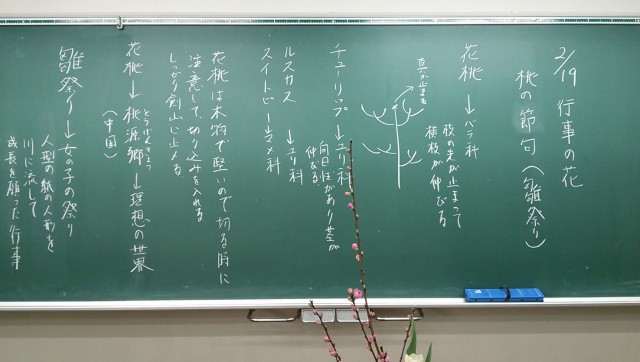 2/19 行事の花
桃の節句(雛祭り)
花桃→バラ科
枝の先が止まって
横枝が伸びる
チューリップ→ユリ科
向日性があり茎が
伸びる
ルスカス→ユリ科
スイトピーマメ科
花桃は木物で堅いので切る時に
注意して、切り込みを入れる
しっかり剣山に止める
花桃→桃源郷→理想の世界
とうげんきょう
(中国)
雛祭り→女の子の祭り
人型の紙の人形を
川に流して
成長を願った行事